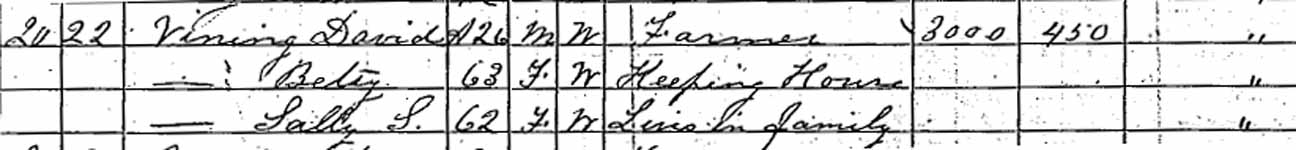 20 22 Vining David A 26 M W Farmer 3000 450 "
— Betsy 63 F. W Keeping House "
— Sally S. 62 F. W Lives in family "